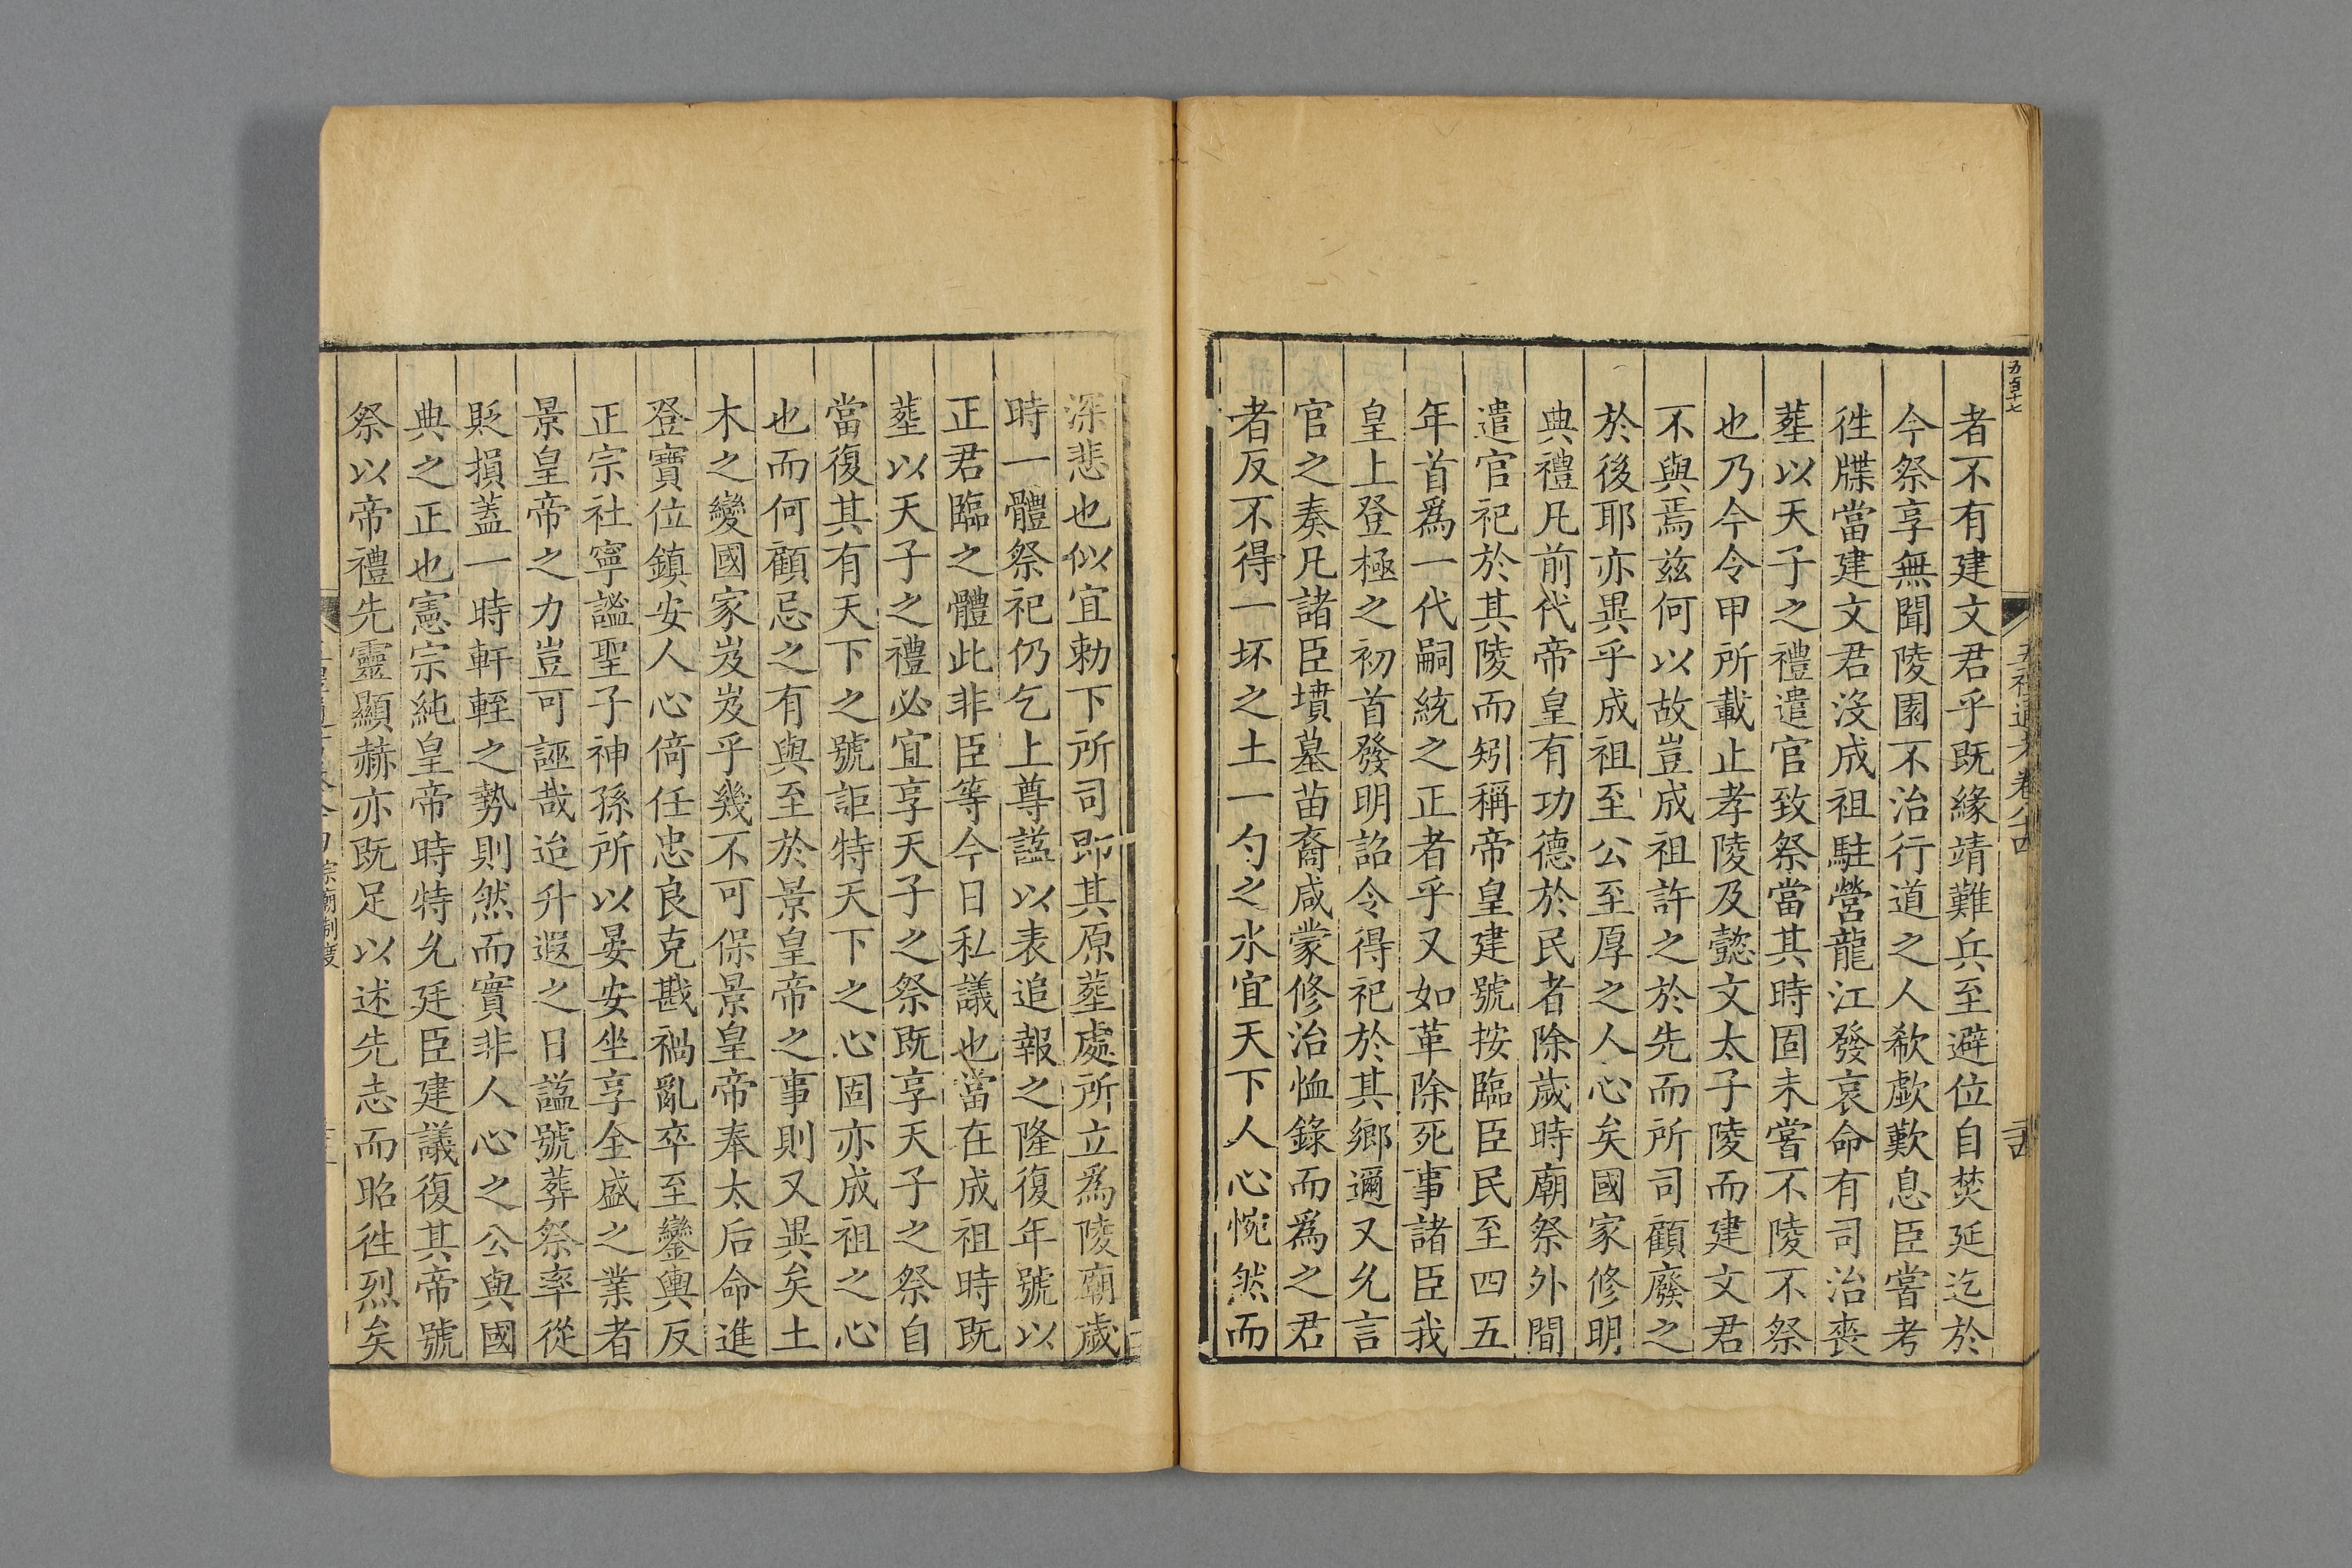 者不有建文君乎既緣靖難兵至避位自焚延迄於
今祭享無聞陵園不治行道之人欷歔歎息臣嘗考
徃牒當建文君沒成祖駐營龍江發哀命有司治喪
塟以天子之禮遣官致祭當其時固未嘗不陵不祭
也乃今令甲所載止孝陵及懿文太子陵而建文君
不與焉兹何以故豈成祖許之於先而所司顧廢之
於後耶亦異乎成祖至公至厚之人心矣國家修明
典禮凡前代帝皇有功德於民者除歲時廟祭外間
遣官祀於其陵而矧稱帝皇建號按臨臣民至四五
年首爲一代嗣統之正者乎又如革除死事諸臣我
皇上登極之初首發明詔令得祀於其鄉邇又允言
官之奏凡諸臣墳墓苗裔咸蒙修治恤錄而爲之君
者反不得一坏之土一勺之水宜天下人心惋然而
深悲也似宜勅下所司即其原塟處所立爲陵廟歲
時一體祭祀仍乞上尊謚以表追報之隆復年號以
正君臨之體此非臣等今日私議也當在成祖時既
塟以天子之禮必宜享天子之祭既享天子之祭自
當復其有天下之號詎特天下之心固亦成祖之心
也而何顧忌之有與至於景皇帝之事則又異矣土
木之變國家岌岌乎幾不可保景皇帝奉太后命進
登寶位鎮安人心倚任忠良克戡禍亂卒至鑾輿反
正宗社寧謐聖子神孫所以晏安坐享全盛之業者
景皇帝之力豈可誣哉迨升遐之日謚號葬祭率從
貶損蓋一時軒輊之勢則然而實非人心之公與國
典之正也憲宗純皇帝時特允廷臣建議復其帝號
祭以帝禮先靈顯赫亦既足以述先志而昭徃烈矣
五禮通考卷八十四
宗廟制度